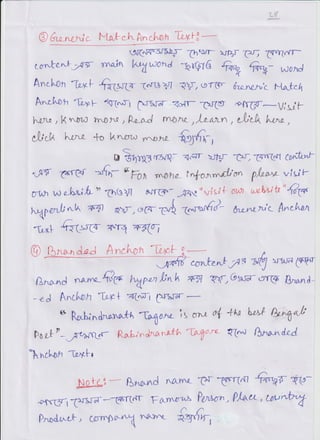 28
③ Generic Match Anchor Text:—
অনেকসময় দেখা যায় যে, কোনো
content এর main keyword ছাড়াও কিছু কিছু word
Anchor Text হিসেবে নেওয়া হয়, তাকে Generic Match
Anchor Text বলে। যেমন বলা যেতে পারে— Visit
here, Know more, Read more, Learn, click here,
click here to know more ইত্যাদি,
উদাহরণস্বরূপ বলা যায় যে, কোনো content
এর কোনো যদি "For more information please visit
our website" দেওয়া থাকে এবং "visit our website" টিকে
hyperlink করা হয়, তবে সেই লেখাটি Generic Anchor
Text হিসেবে কাজ করবে,
④ Branded Anchor Text:—
একটি content এর মধ্যে যখন কোনো
Brand name টিকে hyperlink করা হয়, তখন তাকে Brand-
-ed Anchor Text বলে, যেমন —
"Rabindranath Tagore is one of the best Bengali
Poet"- এখানে Rabindranath Tagore হলো Branded
Anchor Text,
Note:— Brand name যে কোনো কিছুর হতে
পারে, যেমন— কোনো Famous Person, Place, Country
Product, company name ইত্যাদি,